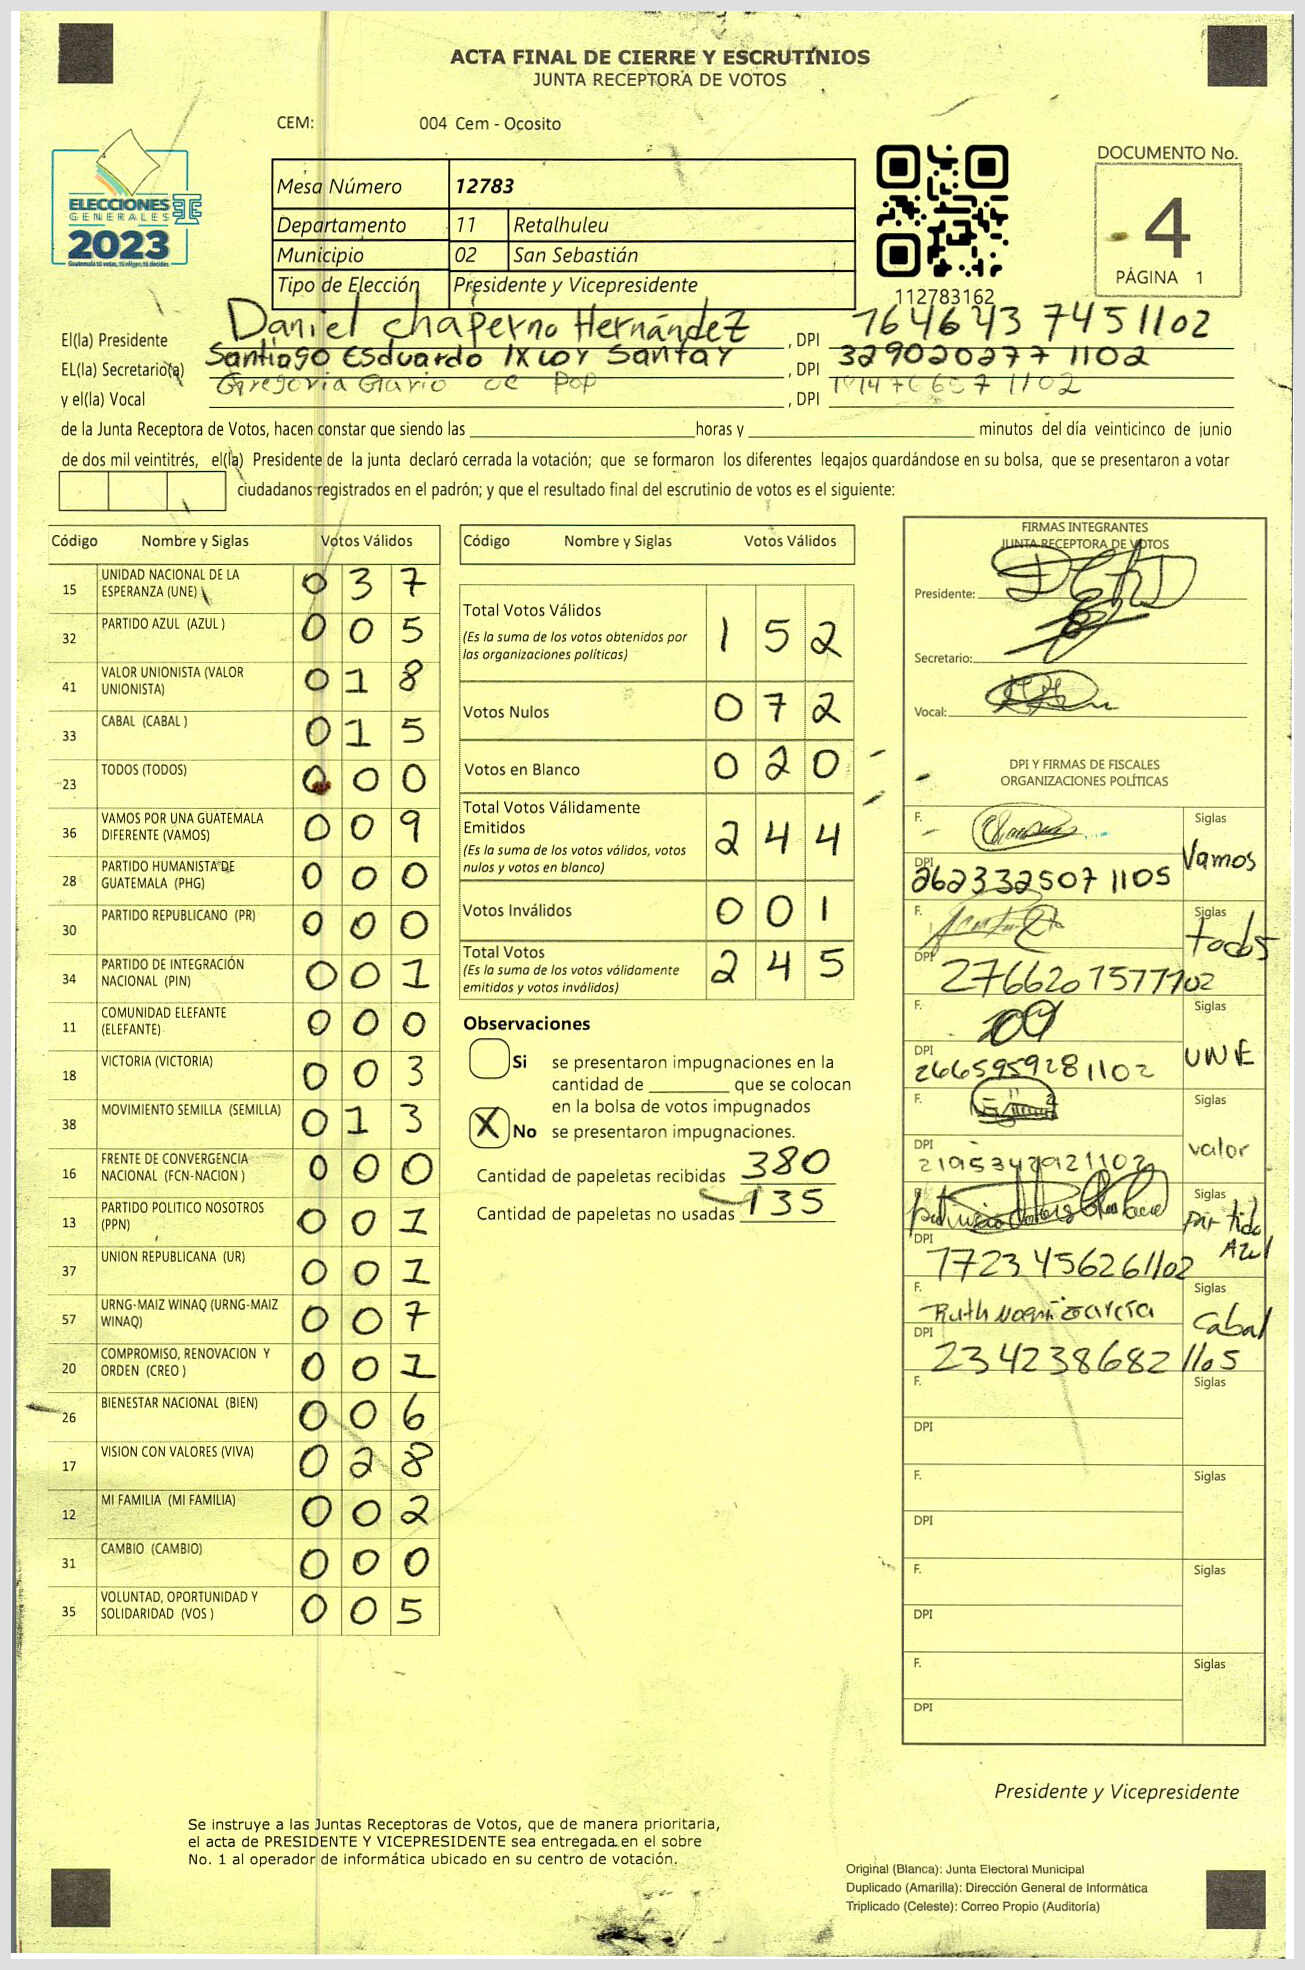 ACTA FINAL DE CIERRE Y ESCRUTINIOS
JUNTA RECEPTORA DE VOTOS
CEM: 004 Cem - Ocosito
ELECCIONES
GENERALES
2023
Mesa Número 12783
Departamento 11 Retalhuleu
Municipio 02 San Sebastián
Tipo de Elección Presidente y Vicepresidente
112783162
DOCUMENTO No.
4
PÁGINA 1
El(la) Presidente Daniel Chaperno Hernández , DPI 164643 7451102
EL(la) Secretario(a) Santiago Esduardo Ixcoy Santay , DPI 329020277 1102
y el(la) Vocal Gregoria de Pop , DPI
de la Junta Receptora de Votos, hacen constar que siendo las horas y minutos del día veinticinco de junio
de dos mil veintitrés, el(la) Presidente de la junta declaró cerrada la votación; que se formaron los diferentes legajos guardándose en su bolsa, que se presentaron a votar
ciudadanos registrados en el padrón; y que el resultado final del escrutinio de votos es el siguiente:
Código Nombre y Siglas Votos Válidos
15 UNIDAD NACIONAL DE LA ESPERANZA (UNE) 0 3 7
32 PARTIDO AZUL (AZUL ) 0 0 5
41 VALOR UNIONISTA (VALOR UNIONISTA) 0 1 8
33 CABAL (CABAL ) 0 1 5
23 TODOS (TODOS) 0 0 0
36 VAMOS POR UNA GUATEMALA DIFERENTE (VAMOS) 0 0 9
28 PARTIDO HUMANISTA DE GUATEMALA (PHG) 0 0 0
30 PARTIDO REPUBLICANO (PR) 0 0 0
34 PARTIDO DE INTEGRACIÓN NACIONAL (PIN) 0 0 1
11 COMUNIDAD ELEFANTE (ELEFANTE) 0 0 0
18 VICTORIA (VICTORIA) 0 0 3
38 MOVIMIENTO SEMILLA (SEMILLA) 0 1 3
16 FRENTE DE CONVERGENCIA NACIONAL (FCN-NACION ) 0 0 0
13 PARTIDO POLITICO NOSOTROS (PPN) 0 0 1
37 UNION REPUBLICANA (UR) 0 0 1
57 URNG-MAIZ WINAQ (URNG-MAIZ WINAQ) 0 0 7
20 COMPROMISO, RENOVACION Y ORDEN (CREO ) 0 0 1
26 BIENESTAR NACIONAL (BIEN) 0 0 6
17 VISION CON VALORES (VIVA) 0 2 8
12 MI FAMILIA (MI FAMILIA) 0 0 2
31 CAMBIO (CAMBIO) 0 0 0
35 VOLUNTAD, OPORTUNIDAD Y SOLIDARIDAD (VOS ) 0 0 5
Código Nombre y Siglas Votos Válidos
Total Votos Válidos 1 5 2
(Es la suma de los votos obtenidos por
las organizaciones políticas)
Votos Nulos 0 7 2
Votos en Blanco 0 2 0
Total Votos Válidamente
Emitidos 2 4 4
(Es la suma de los votos válidos, votos
nulos y votos en blanco)
Votos Inválidos 0 0 1
Total Votos 2 4 5
(Es la suma de los votos válidamente
emitidos y votos inválidos)
Observaciones
Si se presentaron impugnaciones en la
cantidad de que se colocan
en la bolsa de votos impugnados
X No se presentaron impugnaciones.
Cantidad de papeletas recibidas 380
Cantidad de papeletas no usadas 135
FIRMAS INTEGRANTES
JUNTA RECEPTORA DE VOTOS
Presidente:
Secretario:
Vocal:
DPI Y FIRMAS DE FISCALES
ORGANIZACIONES POLÍTICAS
F. Siglas Vamos
DPI 262332507 1105
F. Siglas todos
DPI 2766201577102
F. Siglas UNE
DPI 2665959281102
F. Siglas valor
DPI
F. Siglas partido Azul
DPI 1723456261102
F. Ruth Noemí García Siglas Cabal
DPI 2342386821105
F. Siglas
DPI
F. Siglas
DPI
F. Siglas
DPI
F. Siglas
DPI
Presidente y Vicepresidente
Se instruye a las Juntas Receptoras de Votos, que de manera prioritaria,
el acta de PRESIDENTE Y VICEPRESIDENTE sea entregada en el sobre
No. 1 al operador de informática ubicado en su centro de votación.
Original (Blanca): Junta Electoral Municipal
Duplicado (Amarilla): Dirección General de Informática
Triplicado (Celeste): Correo Propio (Auditoría)